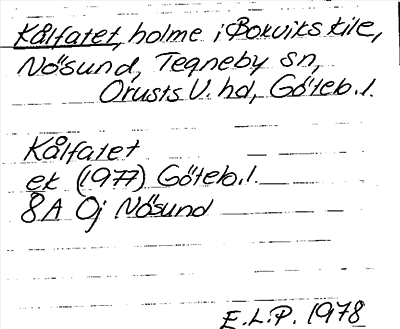 Kålfatet, holme i Bokviks kile,
Nösund, Tegneby sn,
Orusts V. hd, Göteb.l.
Kålfatet
ek (1977) Göteb.l.
8A 0j Nösund
E.L.P. 1978